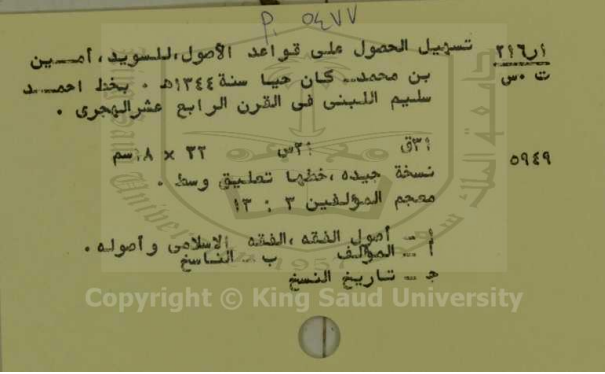 P. ٥٤٧٧
٢١٦ر١ تسهيل الحصول على قواعد الأصول،للسويد،أمـــين
ت ٠س بن محمد... كان حيا سنة ١٣٤٤هـ ٠ بخط احمــــد
سليم اللبنى فى القرن الرابع عشرالهجرى ٠
٣١ق ٢١س ٢٢ × ١٨سم
٥٩٤٩ نسخة جيده،خطها تعليق وسط ٠
معجم المؤلفين ٣ : ١٣
١ــ أصول الفقه،الفقه الاسلامى وأصوله ٠
أ ــ المؤلف ب ــ الناسخ
جـ ــ تاريخ النسخ
Copyright © King Saud University